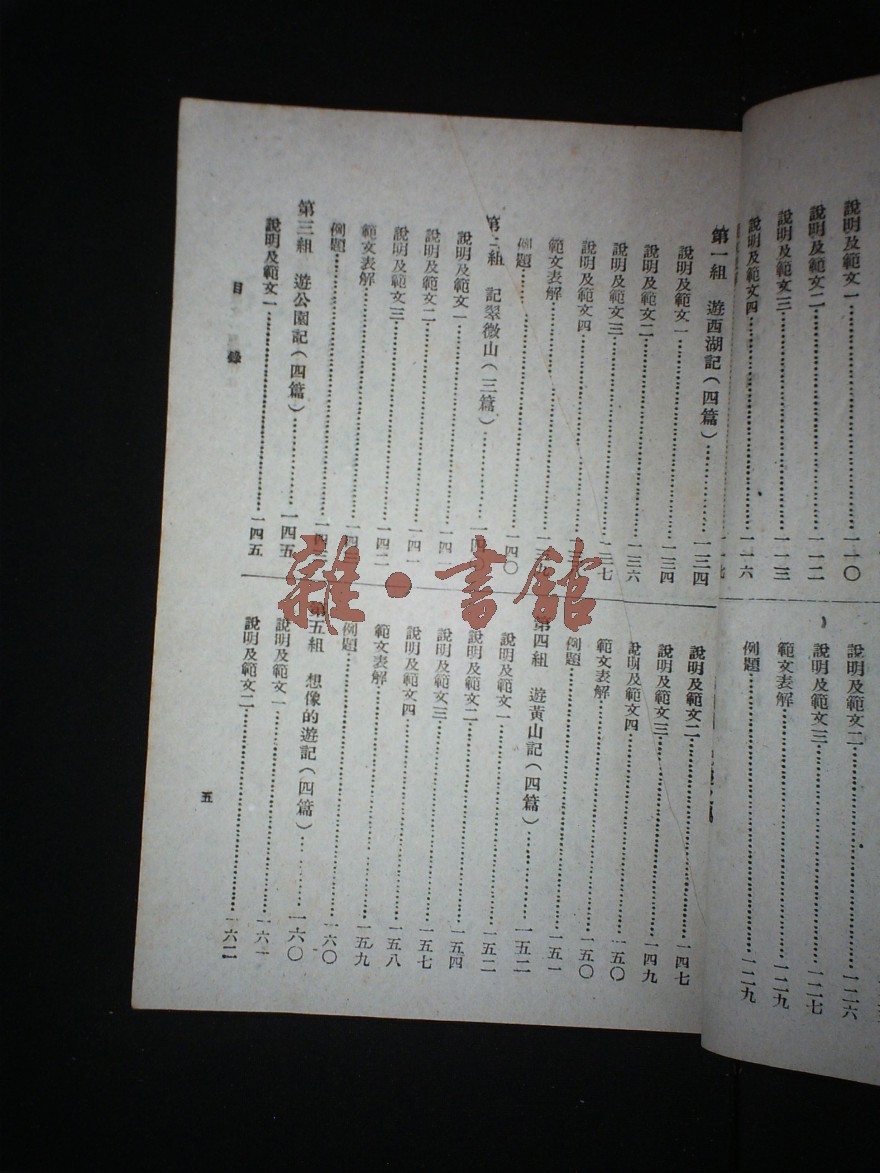 說明及範文一……一一〇
說明及範文二……一一二
說明及範文三……一一三
說明及範文四……一一六
說明及範文二……一二六
說明及範文三……一二七
範文表解……一二九
例題……一二九
第一組 遊西湖記(四篇)……一三四
說明及範文一……一三四
說明及範文二……一三六
說明及範文三……一三七
說明及範文四……
範文表解……一三九
例題……一四〇
第二組 記翠微山(三篇)……一四〇
說明及範文一……
說明及範文二……一四一
說明及範文三……一四二
範文表解……一四三
例題……一四三
第三組 遊公園記(四篇)……一四五
說明及範文一……一四五
說明及範文二……一四七
說明及範文三……一四九
說明及範文四……一五〇
範文表解……一五〇
例題……一五一
第四組 遊黃山記(四篇)……一五二
說明及範文一……一五二
說明及範文二……一五四
說明及範文三……一五七
說明及範文四……一五八
範文表解……一五九
例題……一六〇
第五組 想像的遊記(四篇)……一六〇
說明及範文一……一六一
說明及範文二……一六二
目錄
五
雜·書館